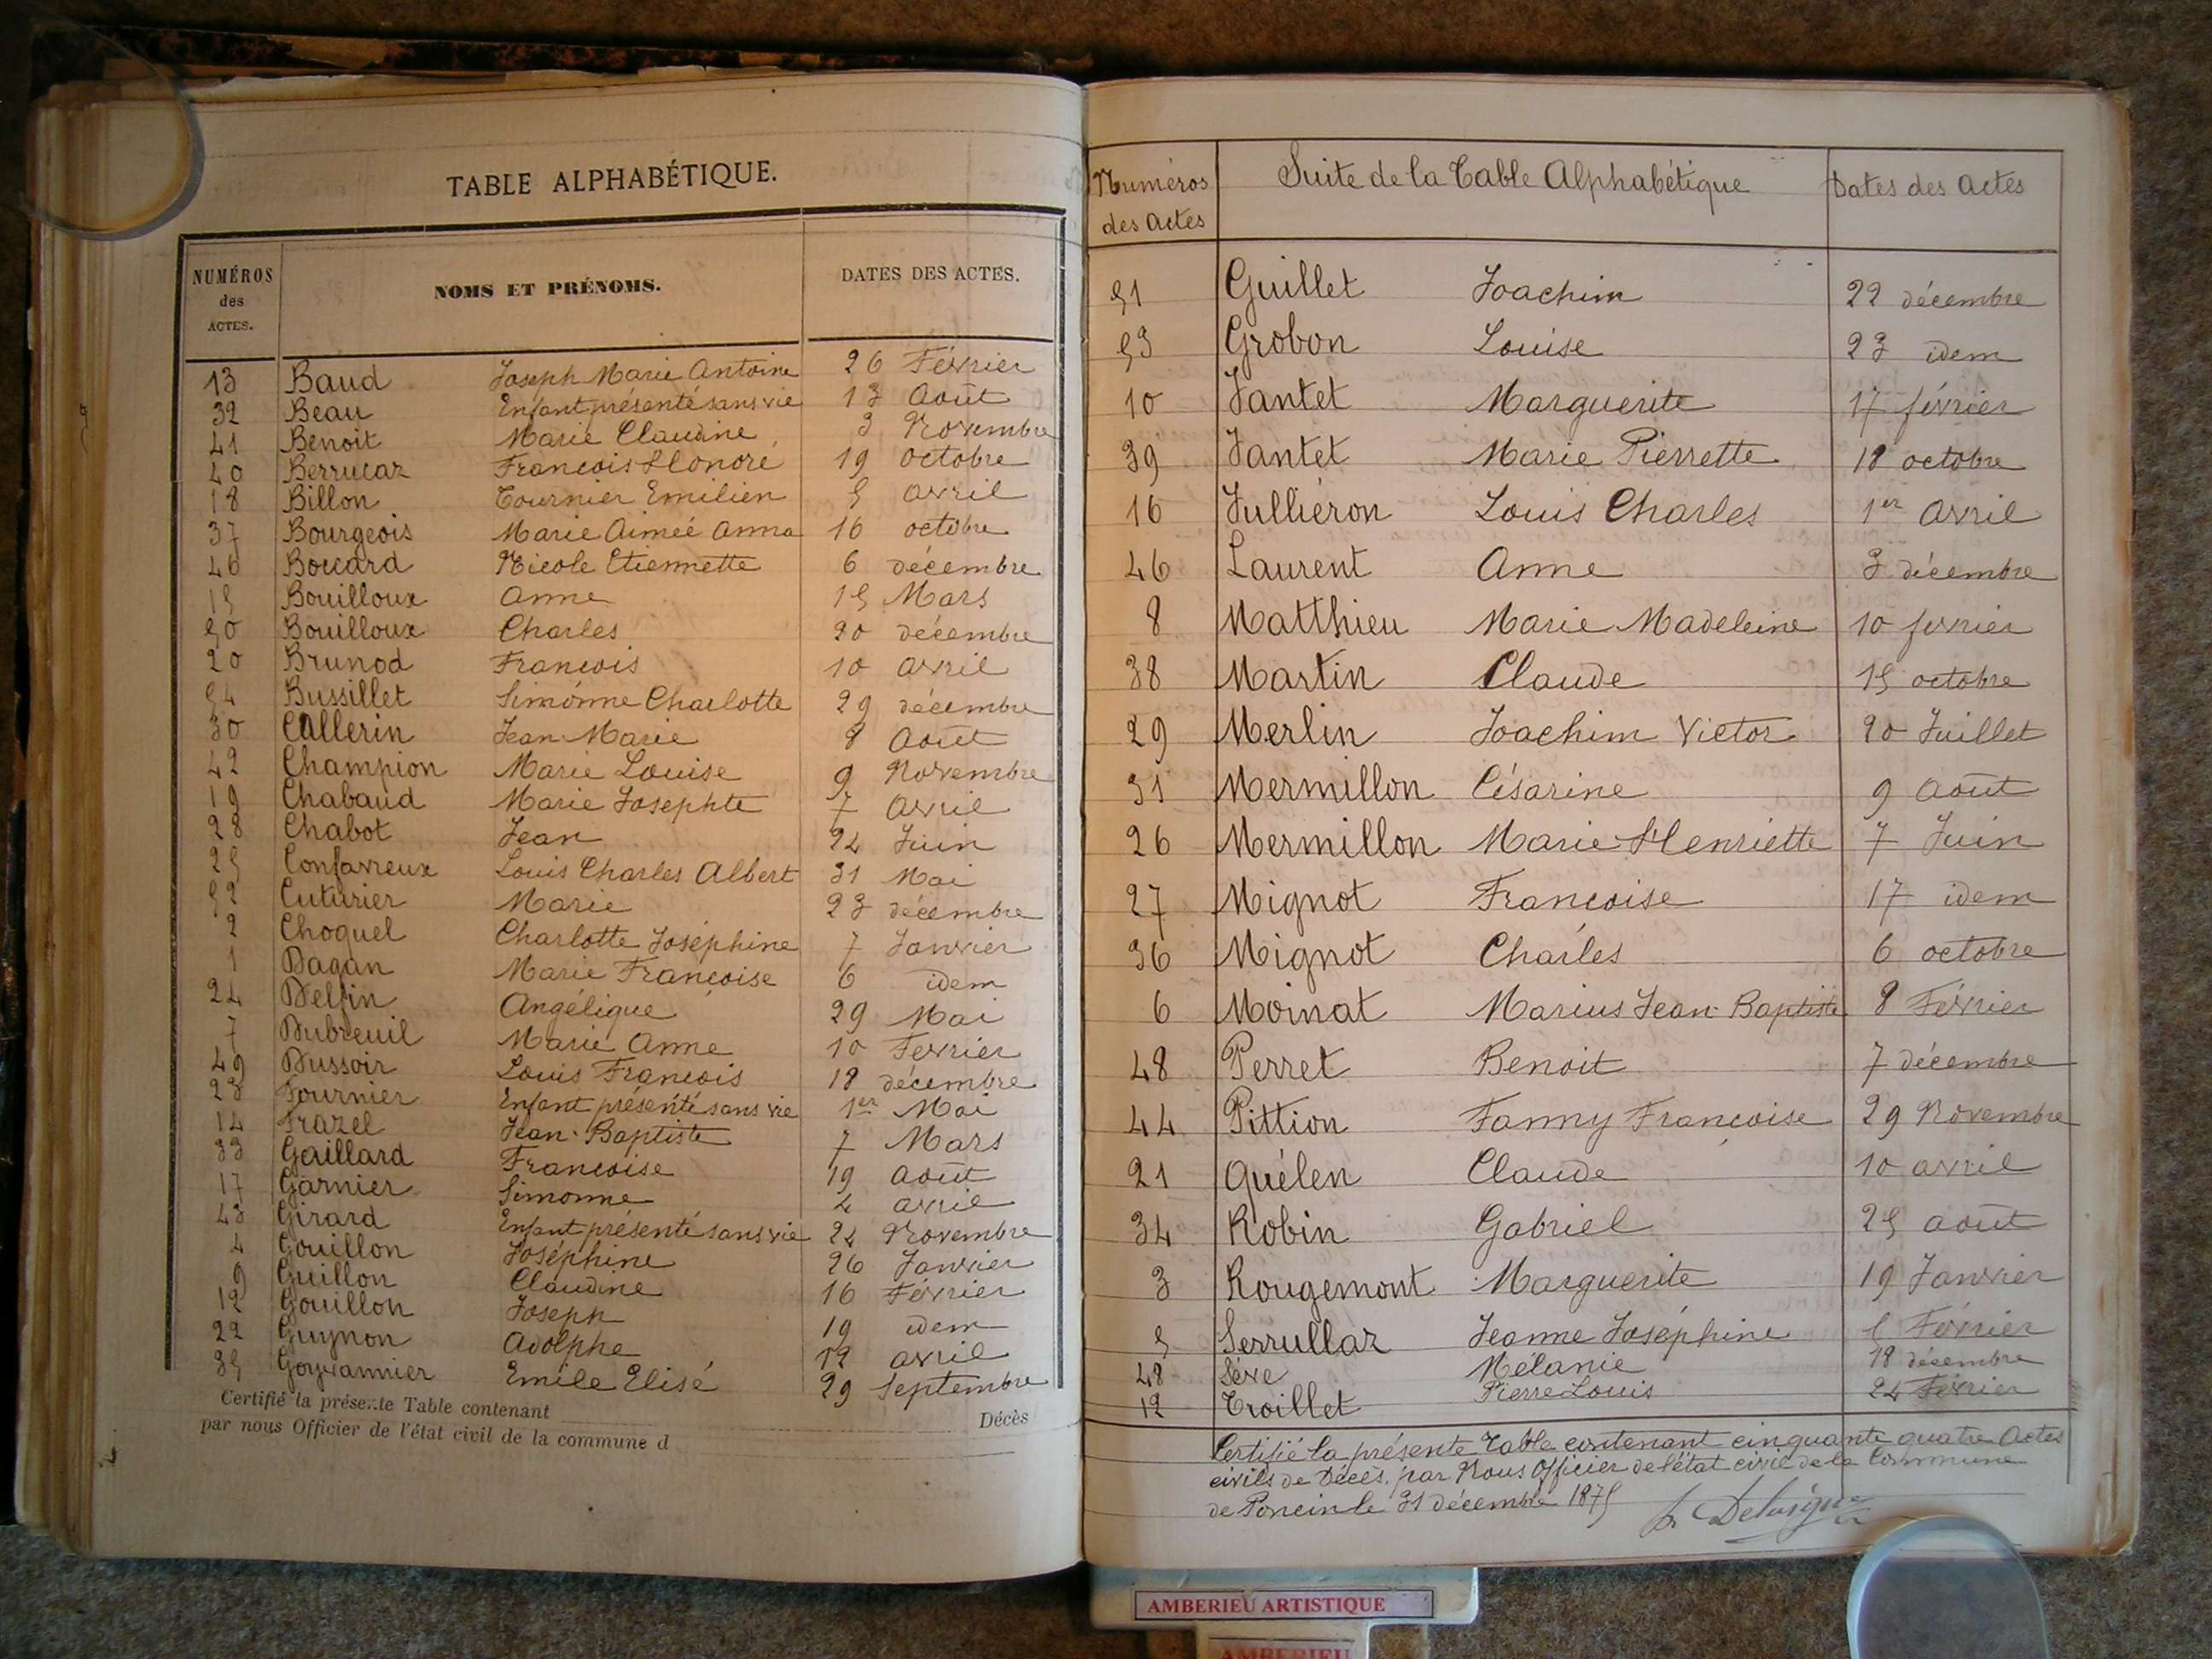 TABLE ALPHABÉTIQUE.
NUMÉROS des ACTES.
NOMS ET PRÉNOMS.
DATES DES ACTES.
13 Baud Joseph Marie Antoine 26 Février
32 Beau Enfant présenté sans vie 13 Août
41 Benoit Marie Claudine 3 Novembre
40 Berrucaz François Honoré 19 octobre
18 Billon Tournier Emilien 5 avril
37 Bourgeois Marie Aimeé Anna 16 octobre
46 Boccard Nicole Etiennette 6 décembre
15 Bouilloux Anne 15 Mars
50 Bouilloux Charles 20 décembre
20 Brunod Francois 10 avril
54 Bussillet Simonne Charlotte 29 décembre
30 Callerin Jean Marie 8 Août
42 Champion Marie Louise 9 Novembre
19 Chabaud Marie Josephte 7 avril
28 Chabot Jean 24 Juin
25 Confavreux Louis Charles Albert 31 Mai
52 Cuturier Marie 23 décembre
2 Choquel Charlotte Joséphine 7 Janvier
1 Dagan Marie Françoise 6 idem
24 Delfin Angélique 29 Mai
7 Dubreuil Marie Anne 10 Fevrier
49 Dussoir Louis Francois 18 décembre
23 Fournier Enfant présenté sans vie 1er Mai
14 Frazel Jean-Baptiste 7 Mars
33 Gaillard Francoise 19 Août
17 Garnier Simonne 4 avril
43 Girard Enfant présenté sans vie 24 Novembre
4 Gouillon Joséphine 26 Janvier
9 Guillon Claudine 16 Février
12 Gouillon Joseph 19 idem
22 Guynon Adolphe 12 avril
35 Emile Elisé 29 Septembre
Certifié la présente Table contenant
par nous Officier de l'état civil de la commune d
Décès
Numéros des Actes
Suite de la Table Alphabétique
Dates des Actes
51 Guillet Joachim 22 décembre
53 Grobon Louise 23 idem
10 Jantet Marguerite 17 février
39 Jantet Marie Pierrette 18 octobre
16 Julliéron Louis Charles 1er Avril
46 Laurent Anne 3 décembre
8 Matthieu Marie Madeleine 10 fevrier
38 Martin Claude 15 octobre
29 Merlin Joachim Victor 20 Juillet
31 Mermillon Césarine 9 août
26 Mermillon Marie Henriette 7 Juin
27 Mignot Francoise 17 idem
36 Mignot Charles 6 octobre
6 Moinat Marius Jean-Baptiste 8 Février
48 Perret Benoit 7 décembre
44 Pittion Fanny Francoise 29 Novembre
21 Quélen Claude 10 avril
34 Robin Gabriel 25 août
3 Rougemont Marguerite 19 Janvier
5 Serrullaz Jeanne Joséphine Février
48 Sève Mélanie 18 décembre
12 Troillet Pierre Louis 24 Février
Certifié la présente Table contenant cinquante quatre Actes
civils de Décès, par Nous Officier de l'état civil de la Commune
de Poncin le 31 décembre 1875
AMBERIEU ARTISTIQUE
AMBERIEU